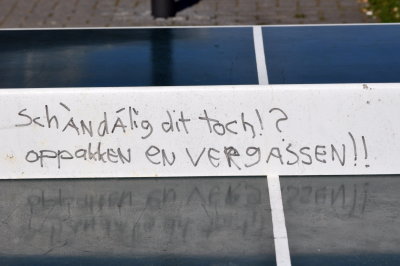 SchÀNdÁlig dit toch!?
oppakken en VERGASSEN!!